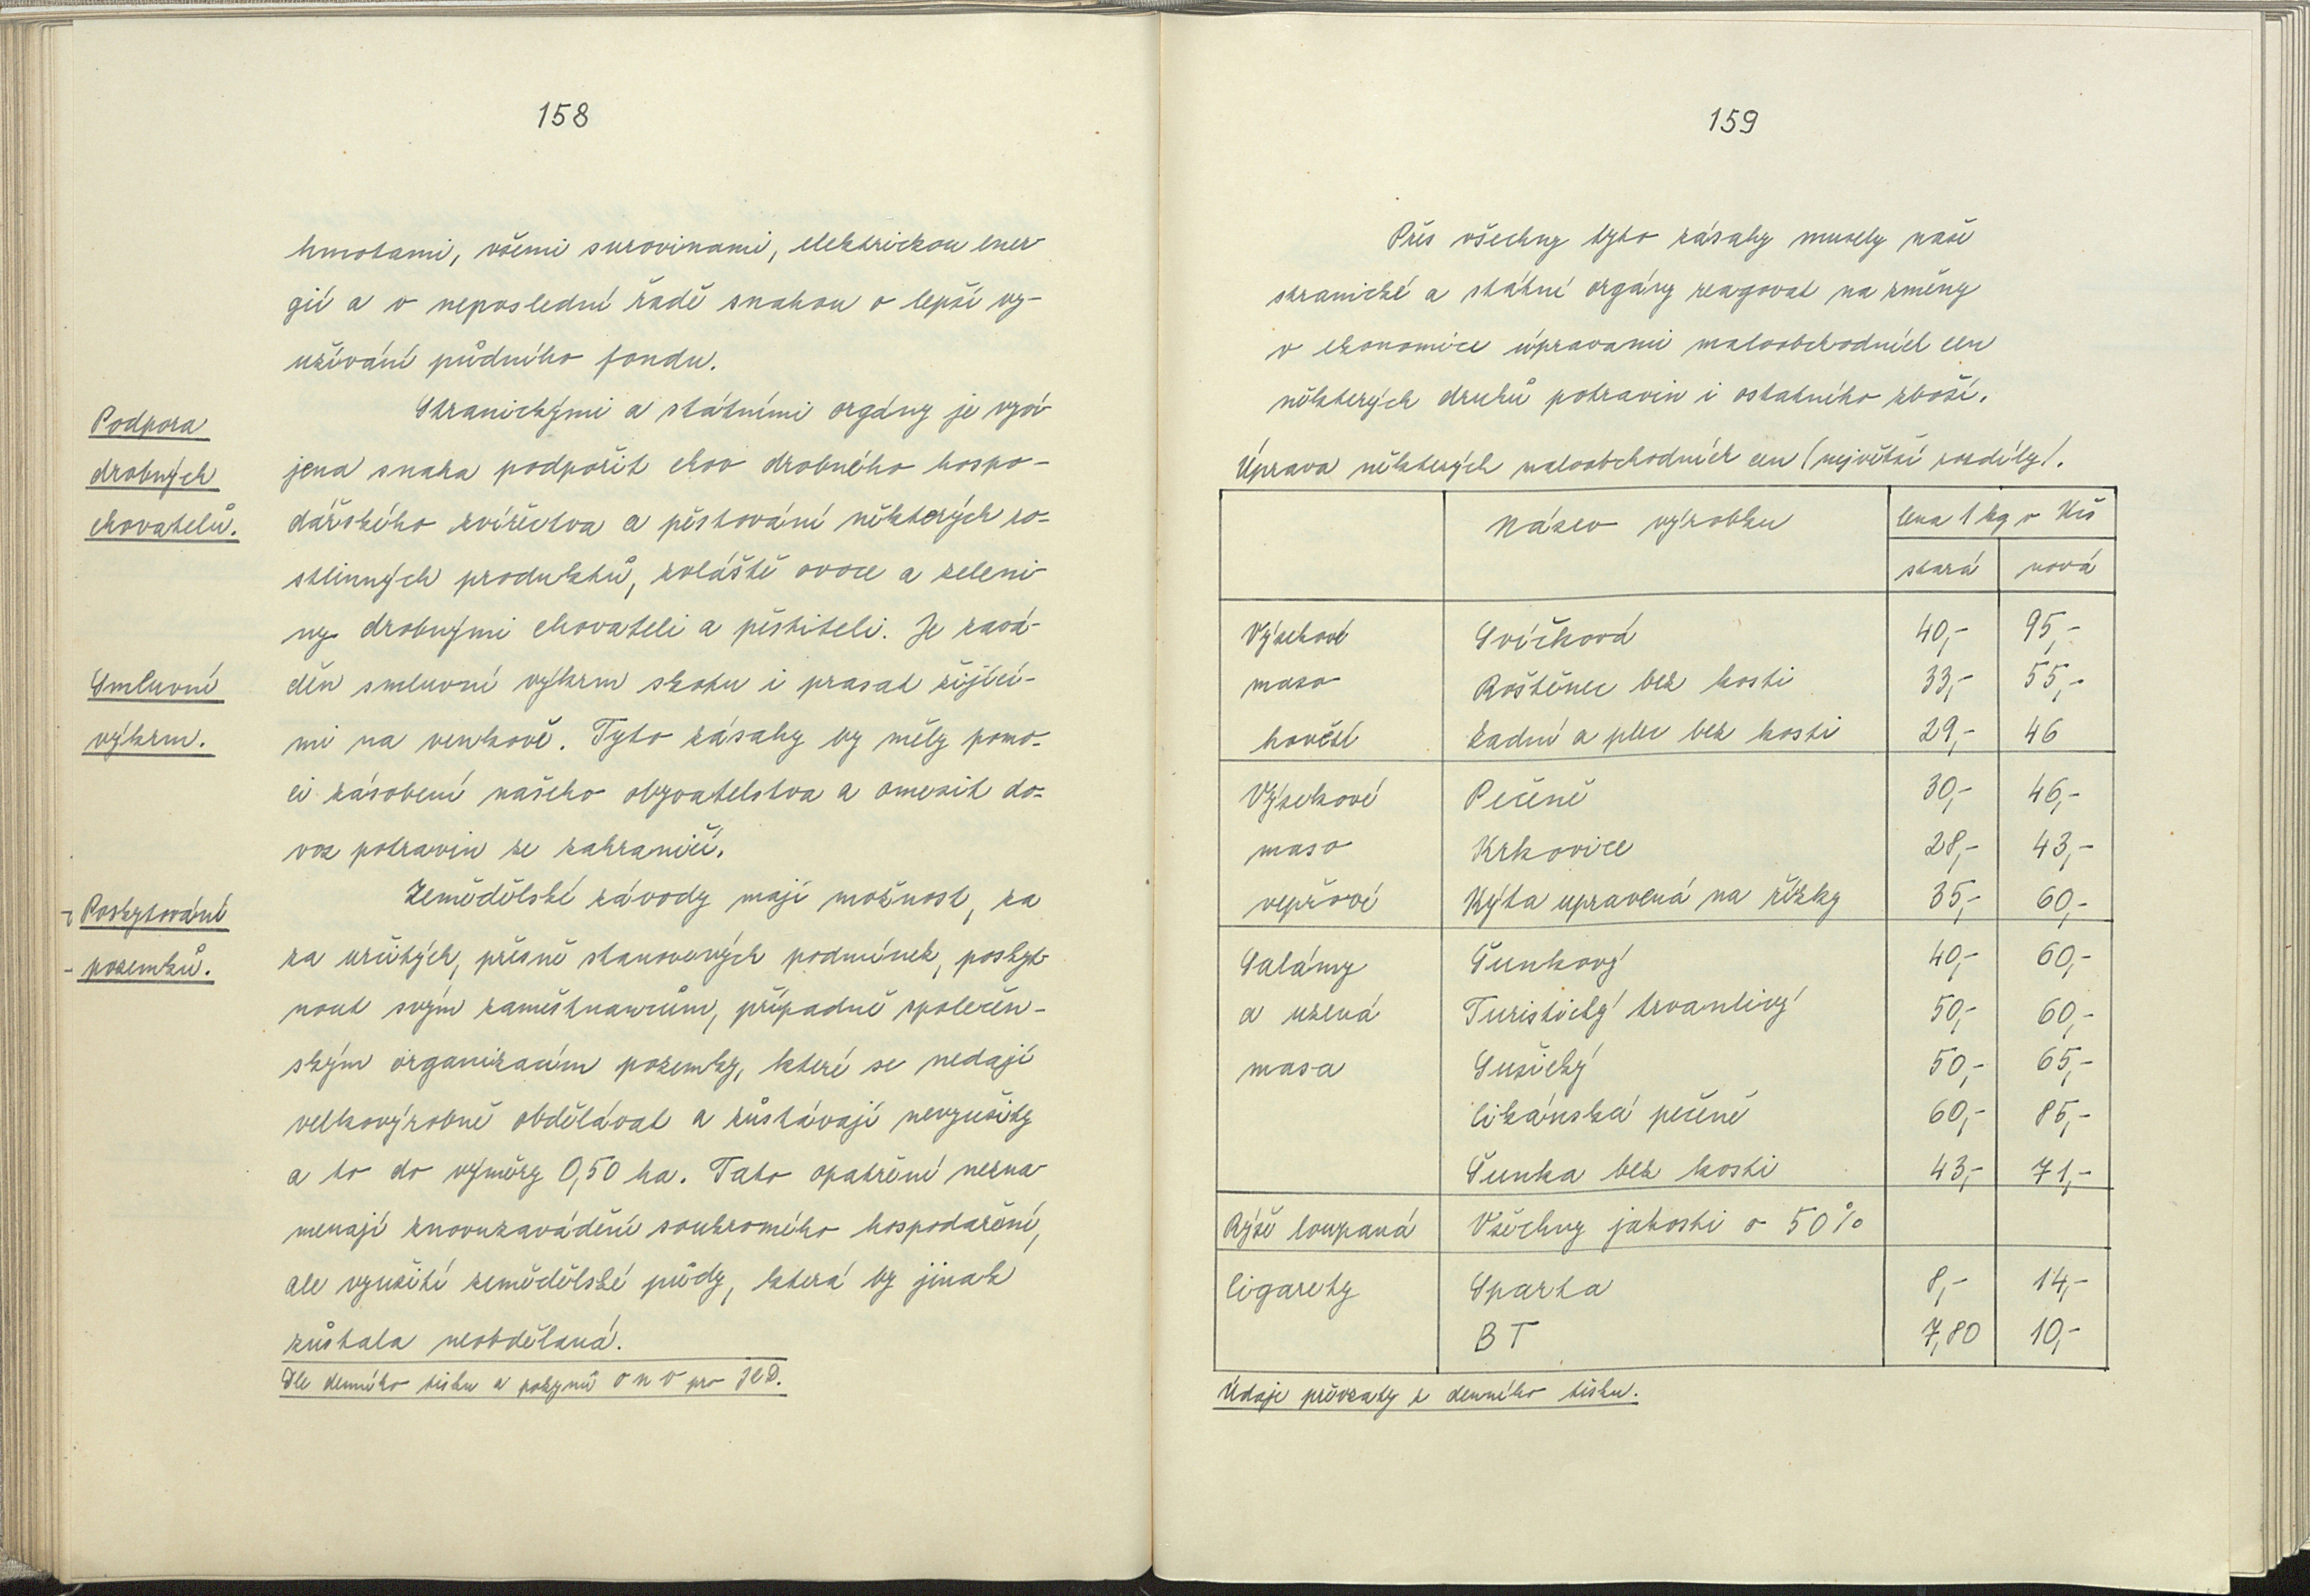 158
hmotami, všemi surovinami, elektrickou ener
gií a v neposlední řadě snahou o lepší vy-
užívání půdního fondu.
Podpora
drobných
chovatelů.
Stranickými a státními orgány je vyví
jena snaha podpořit chov drobného hospo-
dářského zvířectva a pěstování některých ro-
stlinných produktů, zvláště ovoce a zeleni
ny drobnými chovateli a pěstiteli. Je zavá-
Smluvní
výkrm.
děn smluvní výkrm skotu i prasat žijící-
mi na venkově. Tyto zásahy by měly pomo-
ci zásobení našeho obyvatelstva a omezit do-
voz potravin ze zahraničí.
Poskytování
pozemků.
Zemědělské závody mají možnost, za
za určitých, přesně stanovených podmínek, poskyt
nout svým zaměstnancům, případně společen-
ským organizacím pozemky, které se nedají
velkovýrobně obdělávat a zůstávají nevyužity
a to do výměry 0,50 ha. Tato opatření nezna
menají znovuzavádění soukromého hospodaření,
ale využití zemědělské půdy, která by jinak
zůstala neobdělaná.
Dle denního tisku a pokynů O N V pro JZD.
159
Přes všechny tyto zásahy musely naše
stranické a státní orgány reagovat na změny
v ekonomice úpravami maloobchodních cen
některých druhů potravin i ostatního zboží.
Úprava některých maloobchodních cen (největší rozdíly).
Název výrobku Cena 1 kg v Kčs
stará nová
Výsekové Svíčková 40,- 95,-
maso Roštěnec bez kosti 33,- 55,-
hovězí zadní a plec bez kosti 29,- 46
Výsekové Pečeně 30,- 46,-
maso Krkovice 28,- 43,-
vepřové Kýta upravená na řízky 35,- 60,-
Salámy Šunkový 40,- 60,-
a uzená Turistický trvanlivý 50,- 60,-
masa Sušický 50,- 65,-
Cikánská pečeně 60,- 85,-
Šunka bez kosti 43,- 71,-
Rýže loupaná Všechny jakosti o 50%
Cigarety Sparta 8,- 14,-
B T 7,80 10,-
Údaje převzaty z denního tisku.